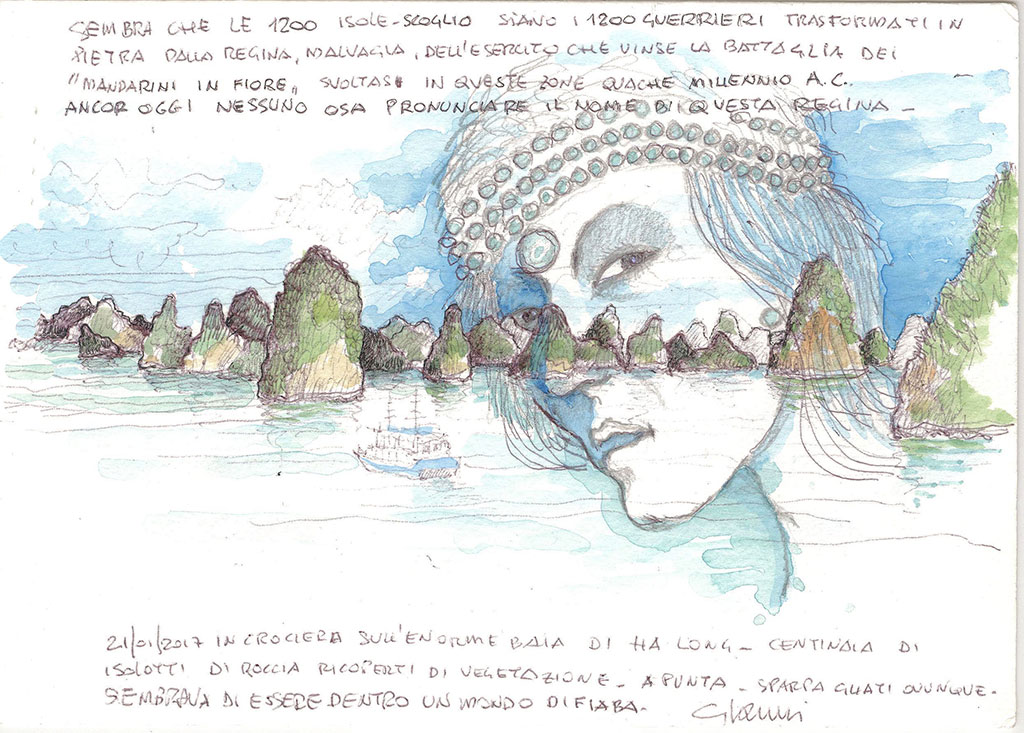 SEMBRA CHE LE 1200 ISOLE-SCOGLIO SIANO I 1200 GUERRIERI TRASFORMATI IN
PIETRA DALLA REGINA, MALVAGIA, DELL'ESERCITO CHE VINSE LA BATTAGLIA DEI
"MANDARINI IN FIORE" SVOLTASI IN QUESTE ZONE QUACHE MILLENNIO A.C.
ANCOR OGGI NESSUNO OSA PRONUNCIARE IL NOME DI QUESTA REGINA -
21/01/2017 IN CROCIERA SULL'ENORME BAIA DI HA LONG - CENTINAIA DI
ISOLOTTI DI ROCCIA RICOPERTI DI VEGETAZIONE - A PUNTA - SPARPAGLIATI OVUNQUE.
SEMBRAVA DI ESSERE DENTRO UN MONDO DI FIABA.
Gianni